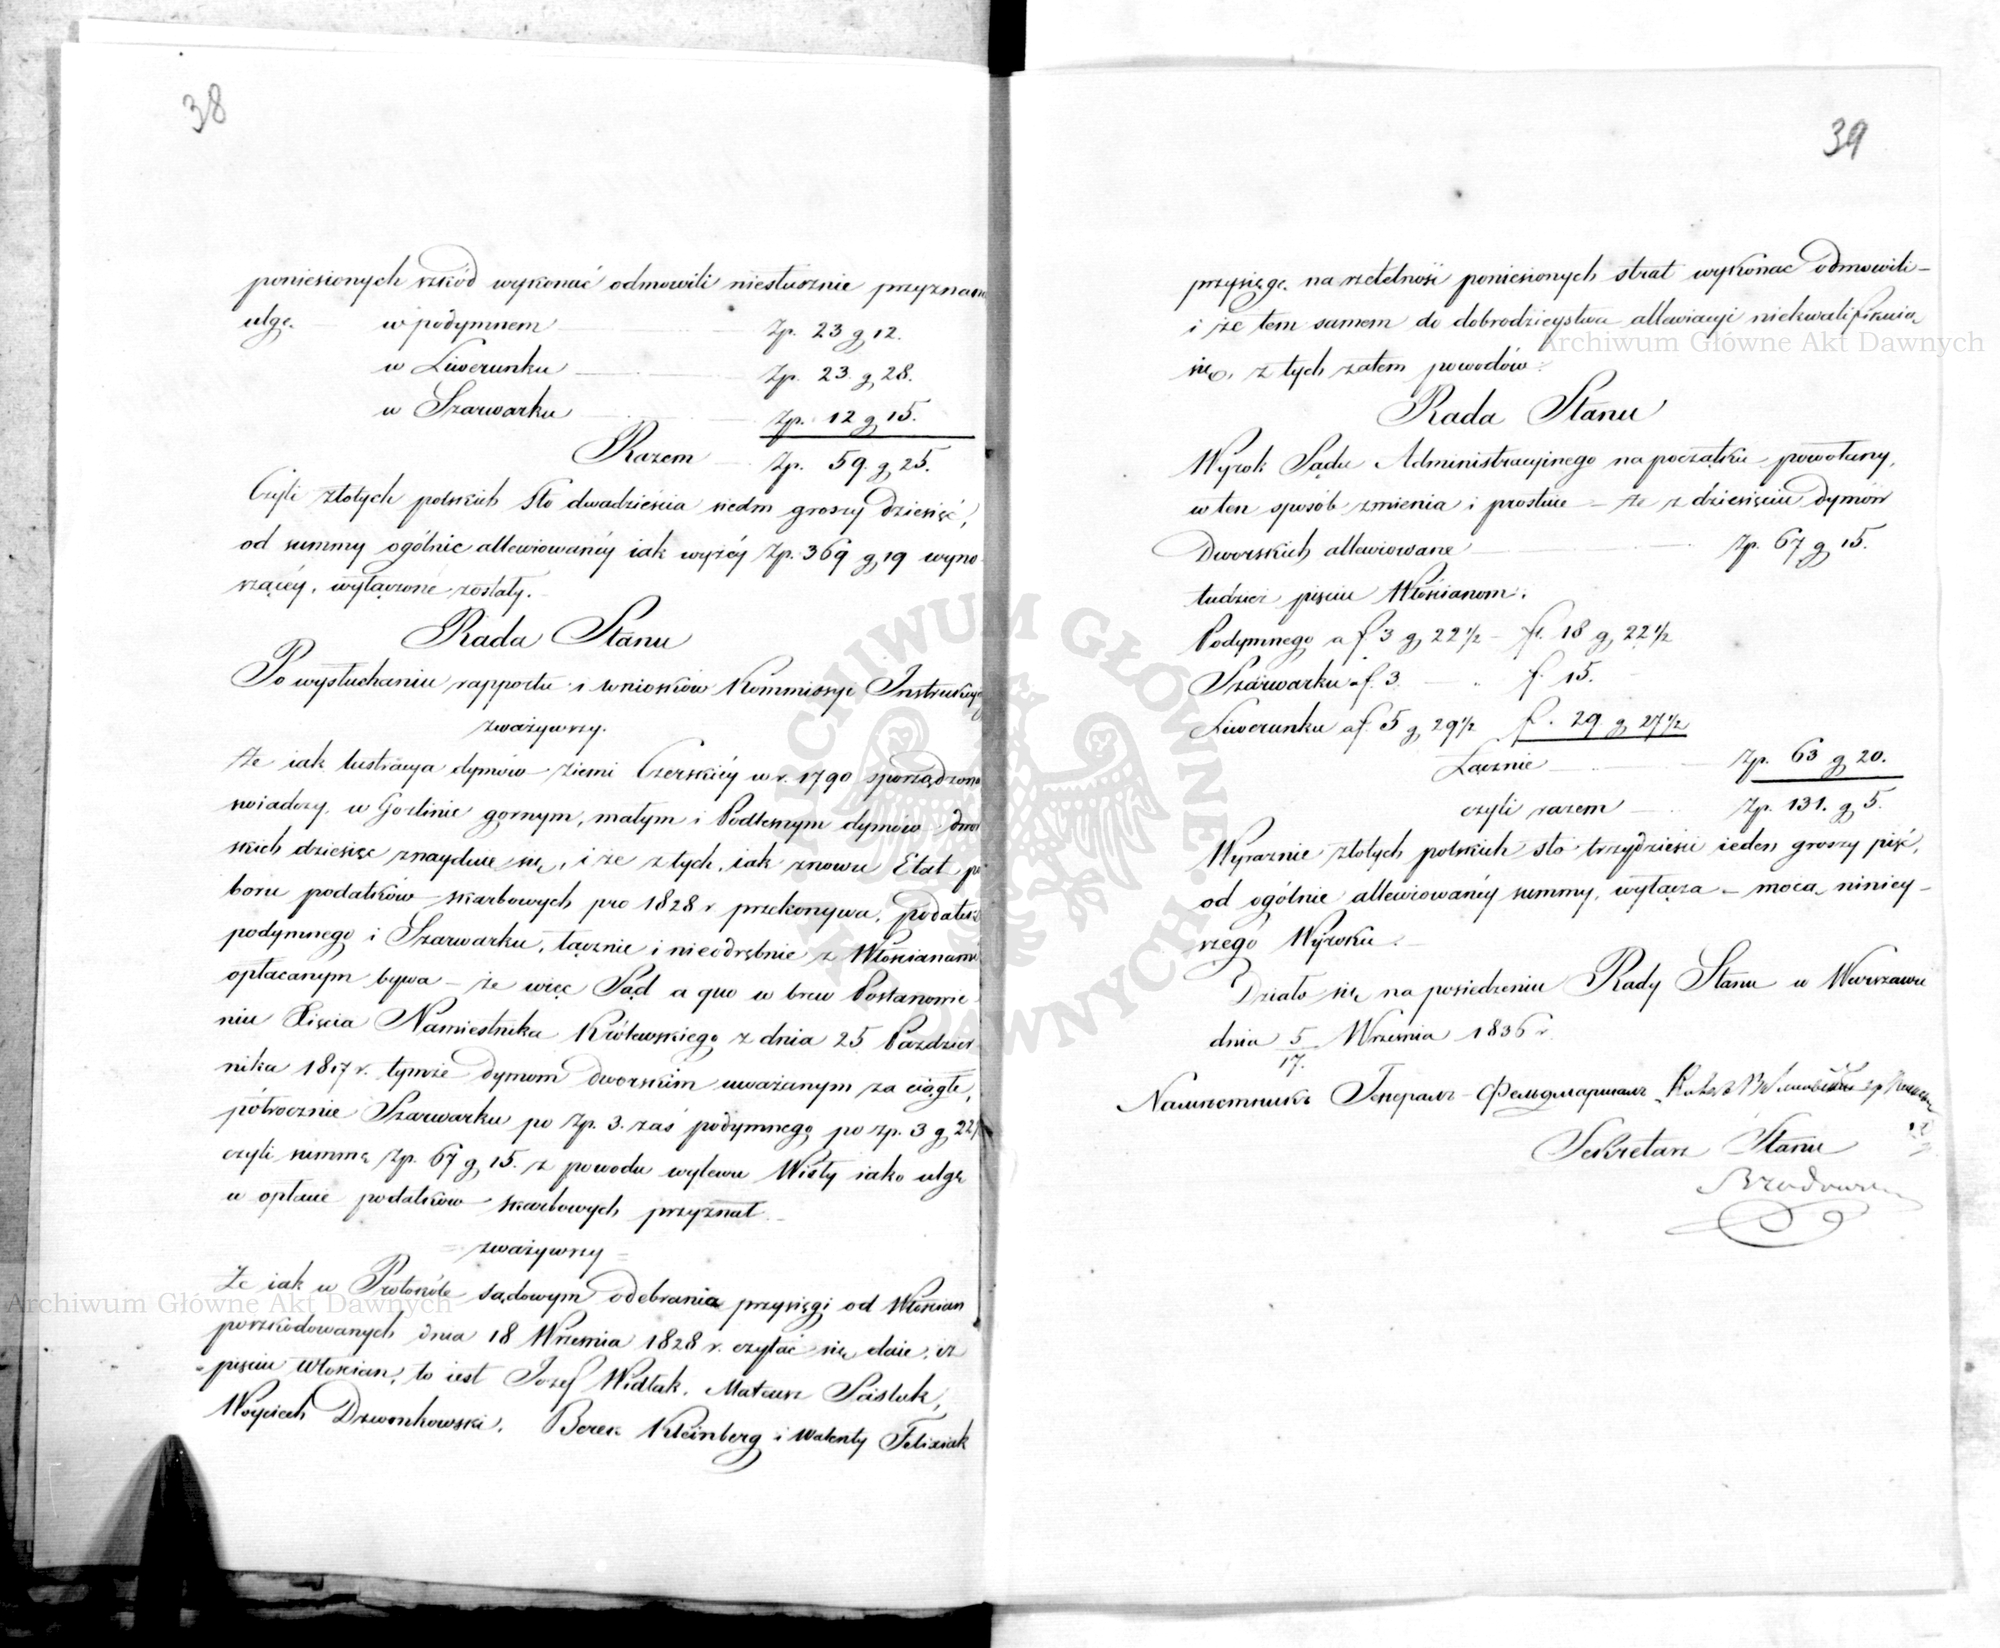 38
poniesionych szkód wykonać odmówili niesłusznie przyznaną
ulgę. w podymnem Zp. 23 g 12.
w Liwerunku Zp. 23. g 28.
w Szarwarku Zp. 12 g 15.
Razem Zp. 59. g 25.
Czyli złotych polskich sto dwadzieścia siedm groszy dziesięć,
od summy ogólnie allewiowanéy iak wyżéy Zp. 369 g 19 wyno
szącéy, wyłączone zostały.
Rada Stanu
Po wysłuchaniu rapportu i wniosków Kommissyi Instrukcyj
zważywszy.
że iak lustracya dymów ziemi Czerskiéy w r. 1790 sporządzona
swiadczy, w Gozlinie gornym, małym i Podlesnym dymów dwor
skich dziesięć znayduie się, i że z tych, iak znowu Etat po
boru podatków skarbowych pro 1828 r. przekonywa, podatek
podymnego i Szarwarku, łącznie i nieodrębnie z Włościanami
opłacanym bywa – że więc Sąd a quo w brew Postanowie
niu Xięcia Namiestnika Królewskiego z dnia 25 Paździer
nika 1817 r. tymże dymom dworskim uważanym za ciągłe,
półrocznie Szarwarku po Zp. 3. zaś podymnego po zp. 3 g 22½
czyli summę Zp. 67 g 15. z powodu wylewu Wisły iako ulgę
w opłacie podatków skarbowych przyznał.
zważywszy
Że iak w Protokóle sądowym odebrania przysięgi od Włościan
poszkodowanych dnia 18 Września 1828 r. czytać się daie, iż
pięciu Włościan, to iest Jozef Widlak, Mateusz Saisluk,
Woyciech Dzwonkowski, Berek Kleinberg i Walenty Felixiak
39
przysięgę na rzetelność poniesionych strat wykonać odmówili –
i że tem samem do dobrodzieystwa allewiacyi niekwalifikuią
się, z tych zatem powodów.
Rada Stanu
Wyrok Sądu Administracyinego na początku powołany,
w ten sposób zmienia i prostuie – że z dziesięciu dymów
Dworskich allewiowane Zp. 67 g 15.
tudzież pięciu Włościanom.
Podymnego a f 3 g 22½ – f. 18 g 22½
Szarwarku a f. 3 f. 15.
Liwerunku a f 5 g 29½ f. 29 g 27½
Łącznie Zp. 63 g 20.
czyli razem Zp. 131. g 5.
Wyraznie złotych polskich sto trzydzieści ieden groszy pięć,
od ogólnie allewiowanéy summy, wyłącza – mocą niniey –
szego Wyroku.
Działo się na posiedzeniu Rady Stanu w Warszawie
dnia 5/17. Września 1836 r.
Намѣстникъ Генералъ-Фельдмаршалъ
Sekretarz Stanu
Archiwum Główne Akt Dawnych
Archiwum Główne Akt Dawnych
ARCHIWUM GŁÓWNE AKT DAWNYCH